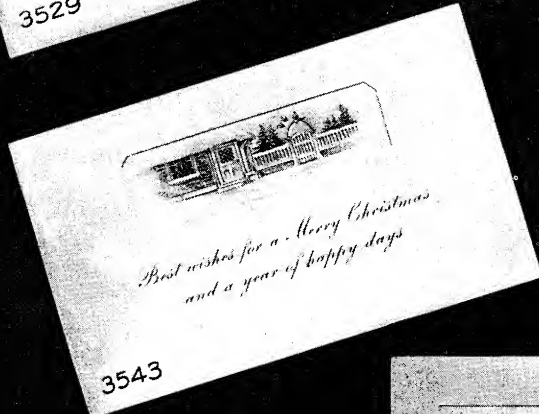 3529
Best wishes for a Merry Christmas
and a year of happy days
3543